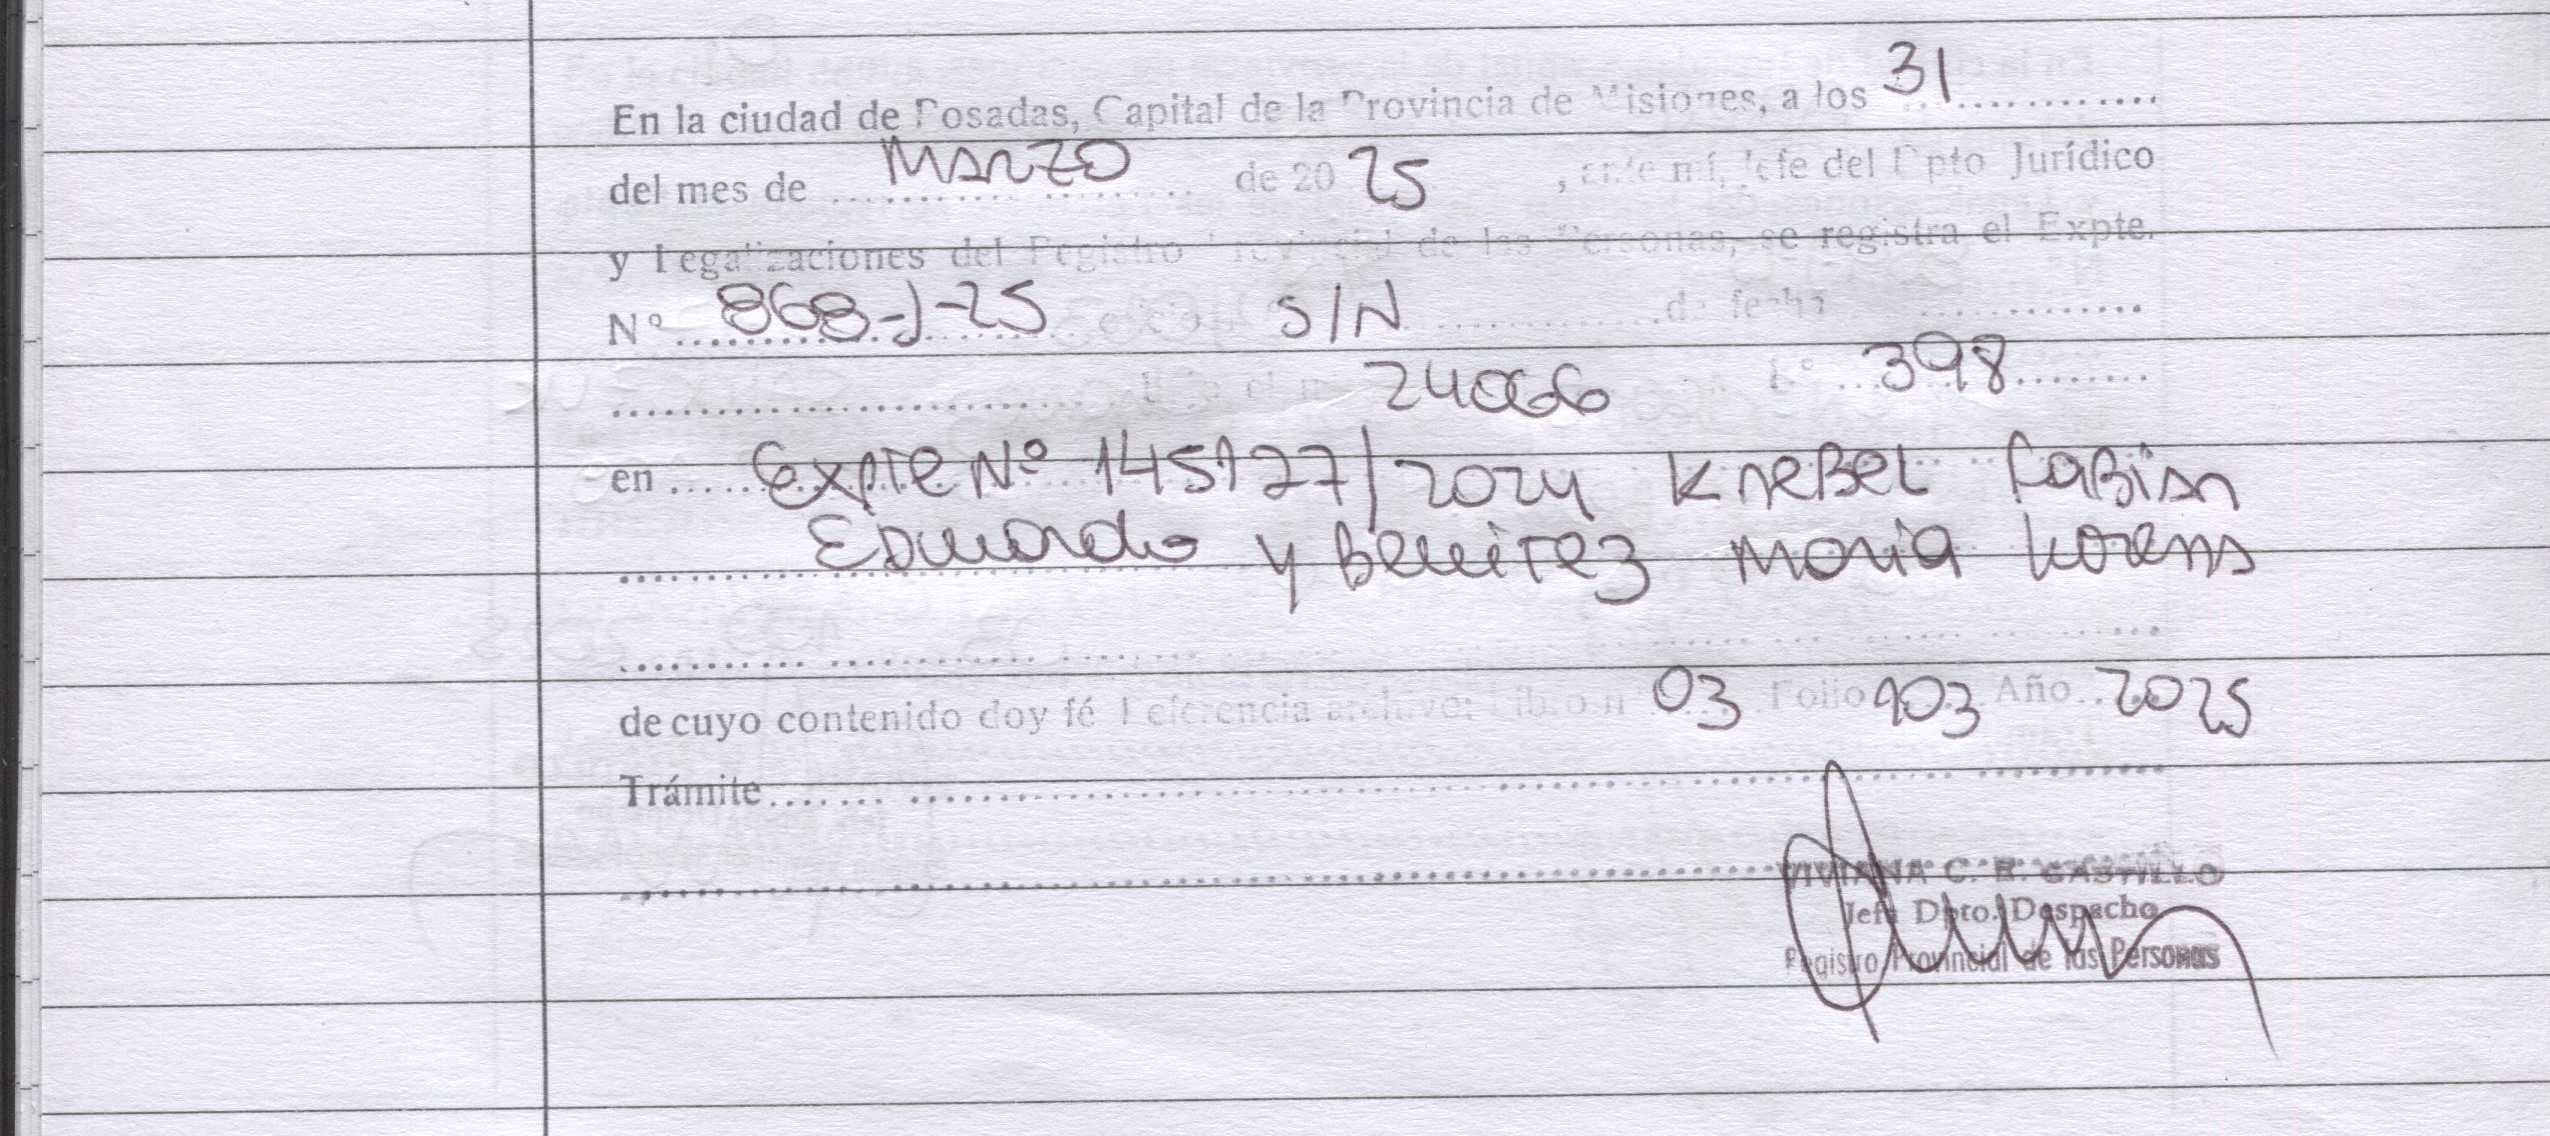 En la ciudad de Posadas, Capital de la Provincia de Misiones, a los 31
del mes de Marzo de 20 25, ante mí, Jefe del Dpto Jurídico
y Legalizaciones del Registro Provincial de las Personas, se registra el Expte.
Nº 868-J-25 S/N de fecha
24066 Nº 398
en Expte Nº 145127/2024 Knebel Fabian
Eduardo y Benitez Maria Lorena
de cuyo contenido doy fé Referencia archivo: Libro nº 03 Folio 103 Año 2025
Trámite
VIVIANA C. R. CASTILLO
Jefa Dpto. Despacho
Registro Provincial de las Personas